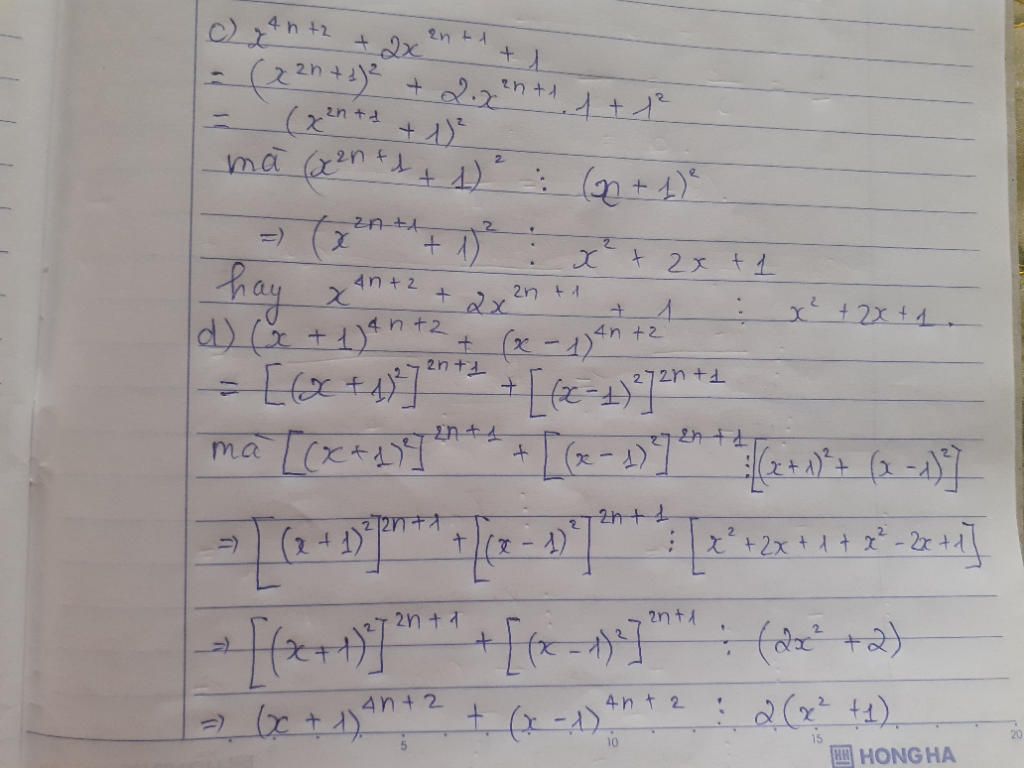 c) x^{4n+2} + 2x^{2n+1} + 1
= (x^{2n+1})^2 + 2.x^{2n+1}.1 + 1^2
= (x^{2n+1} + 1)^2
mà (x^{2n+1} + 1)^2 ⋮ (x + 1)^2
=> (x^{2n+1} + 1)^2 ⋮ x^2 + 2x + 1
hay x^{4n+2} + 2x^{2n+1} + 1 ⋮ x^2 + 2x + 1.
d) (x + 1)^{4n+2} + (x - 1)^{4n+2}
= [(x + 1)^2]^{2n+1} + [(x - 1)^2]^{2n+1}
mà [(x + 1)^2]^{2n+1} + [(x - 1)^2]^{2n+1} ⋮ [(x + 1)^2 + (x - 1)^2]
=> [(x + 1)^2]^{2n+1} + [(x - 1)^2]^{2n+1} ⋮ [x^2 + 2x + 1 + x^2 - 2x + 1]
=> [(x + 1)^2]^{2n+1} + [(x - 1)^2]^{2n+1} ⋮ (2x^2 + 2)
=> (x + 1)^{4n+2} + (x - 1)^{4n+2} ⋮ 2(x^2 + 1)
5 10 15 20
HH HONG HA